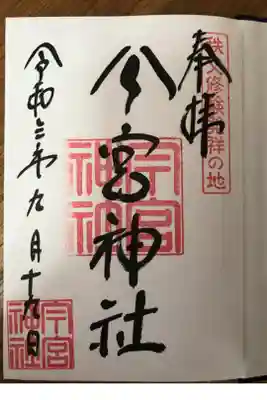 秩父修験発祥の地
奉拝
今宮神社
今宮神社
令和三年九月十九日
今宮神社